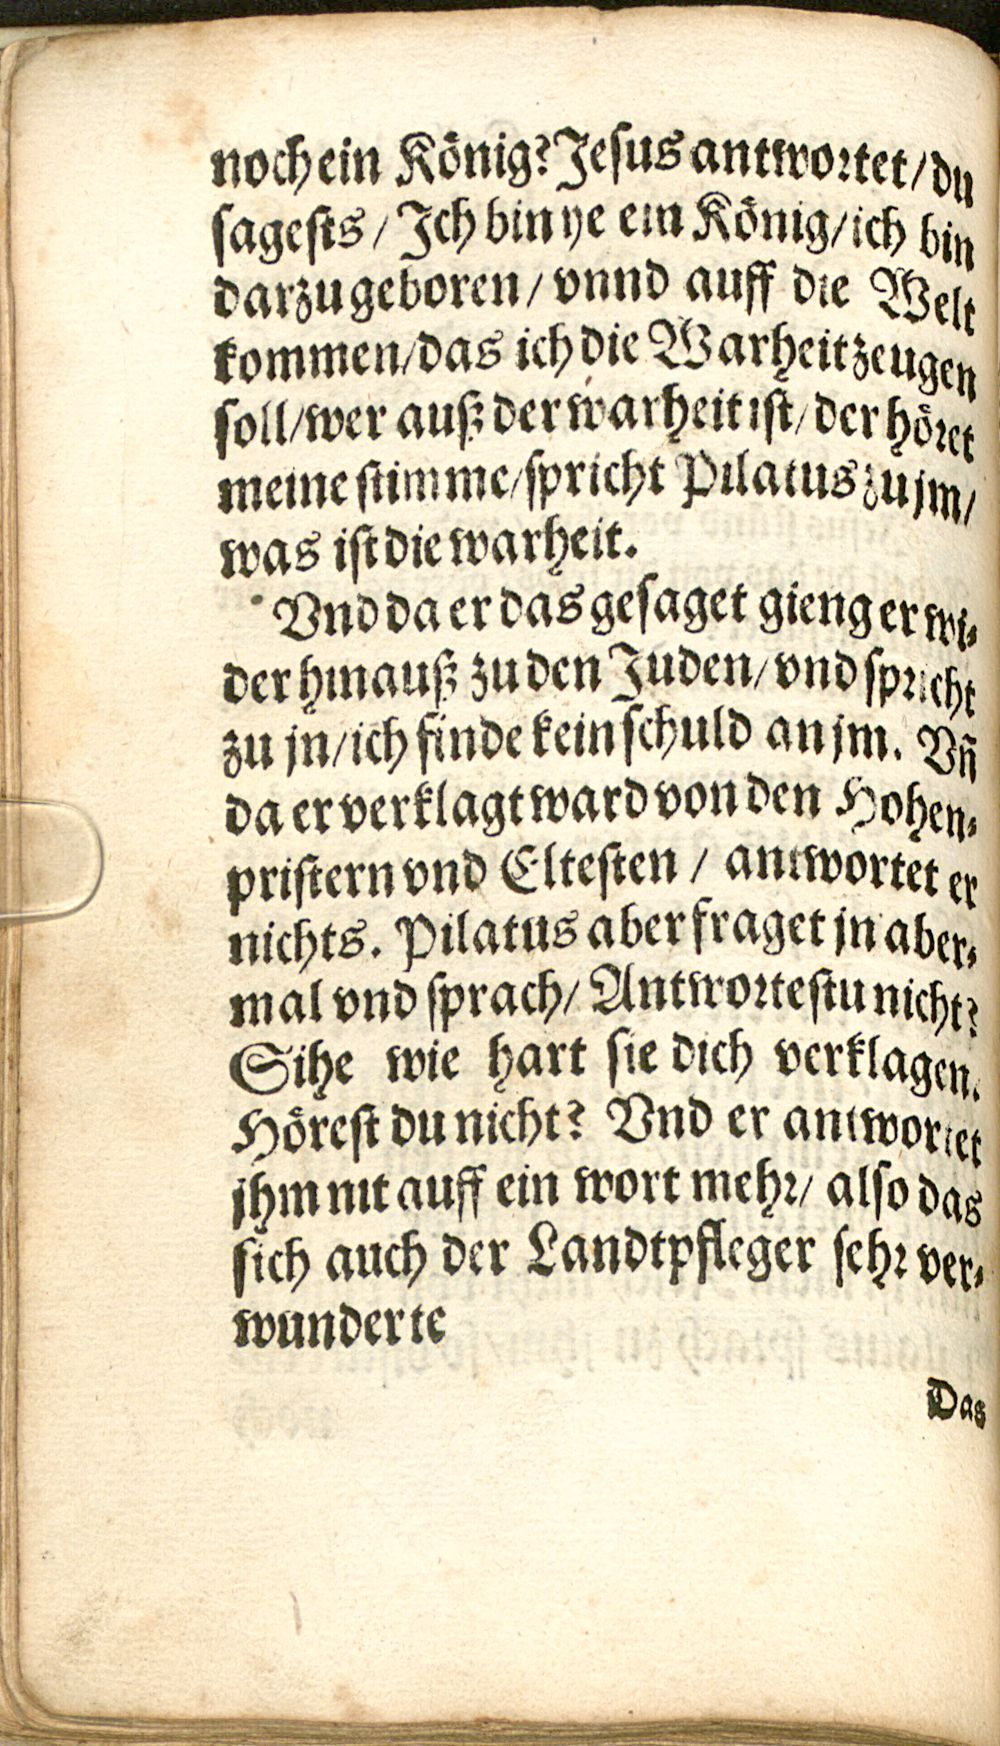 noch ein König? Jesus antwortet / du
sagests / Ich bin ye ein König / ich bin
darzu geboren / vnnd auff die Welt
kommen / das ich die Warheit zeugen
soll / wer auß der warheit ist / der höret
meine stimme / spricht Pilatus zu jm /
was ist die warheit.
Vnd da er das gesaget gieng er wi-
der hinauß zu den Juden / vnd spricht
zu jn / ich finde kein schuld an jm. Vñ
da er verklagt ward von den Hohen-
pristern vnd Eltesten / antwortet er
nichts. Pilatus aber fraget jn aber-
mal vnd sprach / Antwortestu nicht?
Sihe wie hart sie dich verklagen.
Hörest du nicht? Vnd er antwortet
jhm nit auff ein wort mehr / also das
sich auch der Landtpfleger sehr ver-
wunderte
Das